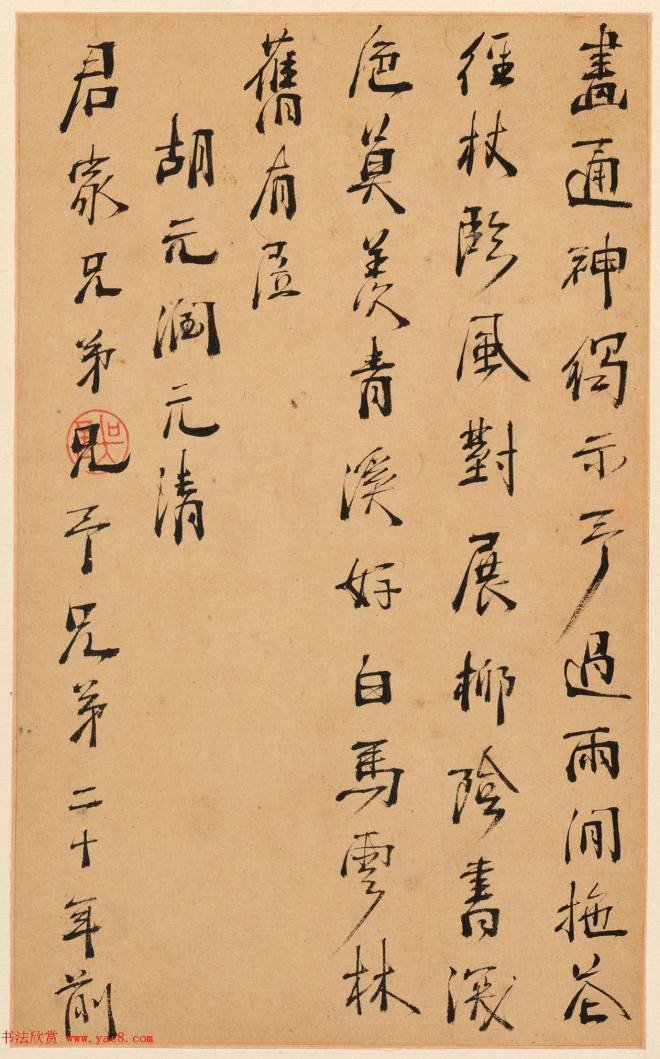 畫通神獨示予過雨閒拖花
徑杖臨風對展柳陰書深
巵莫羨青溪好白馬雲林
舊有居
胡元潤元清
君家兄弟兄予兄弟二十年前
书法欣赏 www.yac8.com